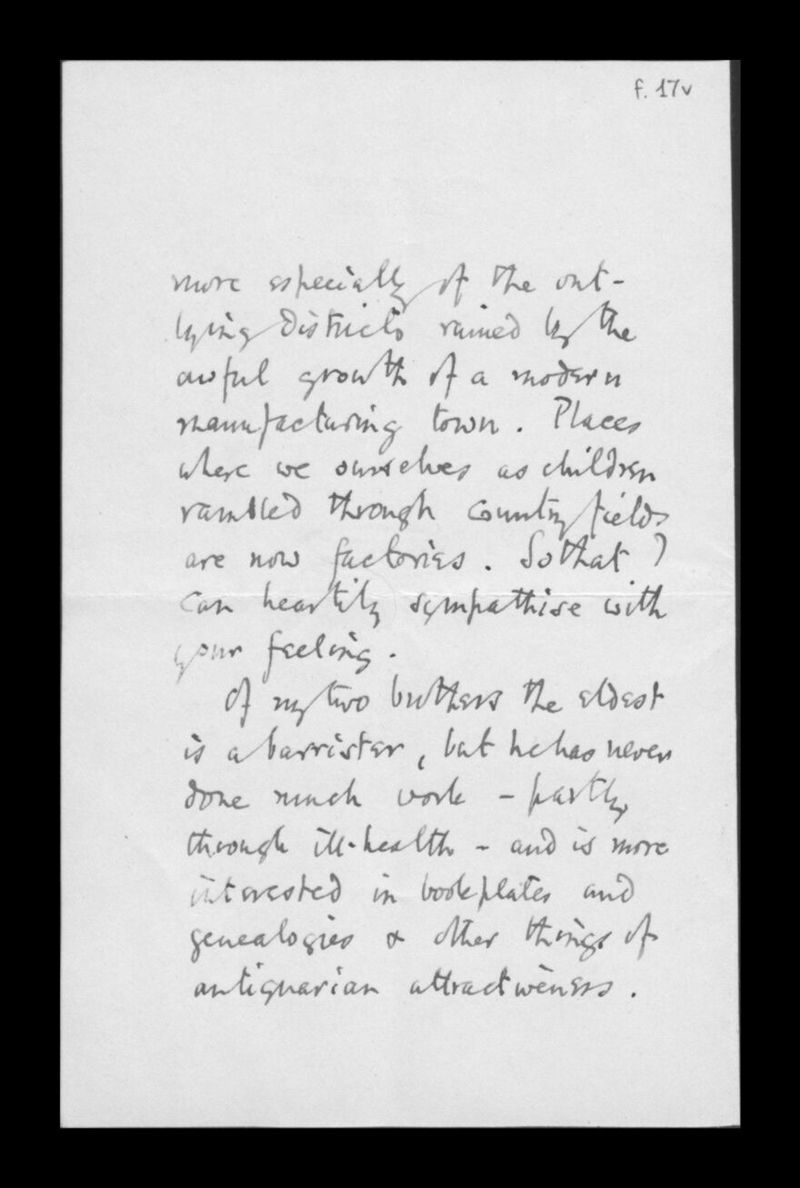 f. 17v
more especially of the out-
lying districts ruined by the
awful growth of a modern
manufacturing town. Places
where we ourselves as children
rambled through country fields
are now factories. So that I
can heartily sympathise with
your feeling.
Of my two brothers the eldest
is a barrister, but he has never
done much work - partly
through ill-health - and is more
interested in bookplates and
genealogies & other things of
antiquarian attractiveness.